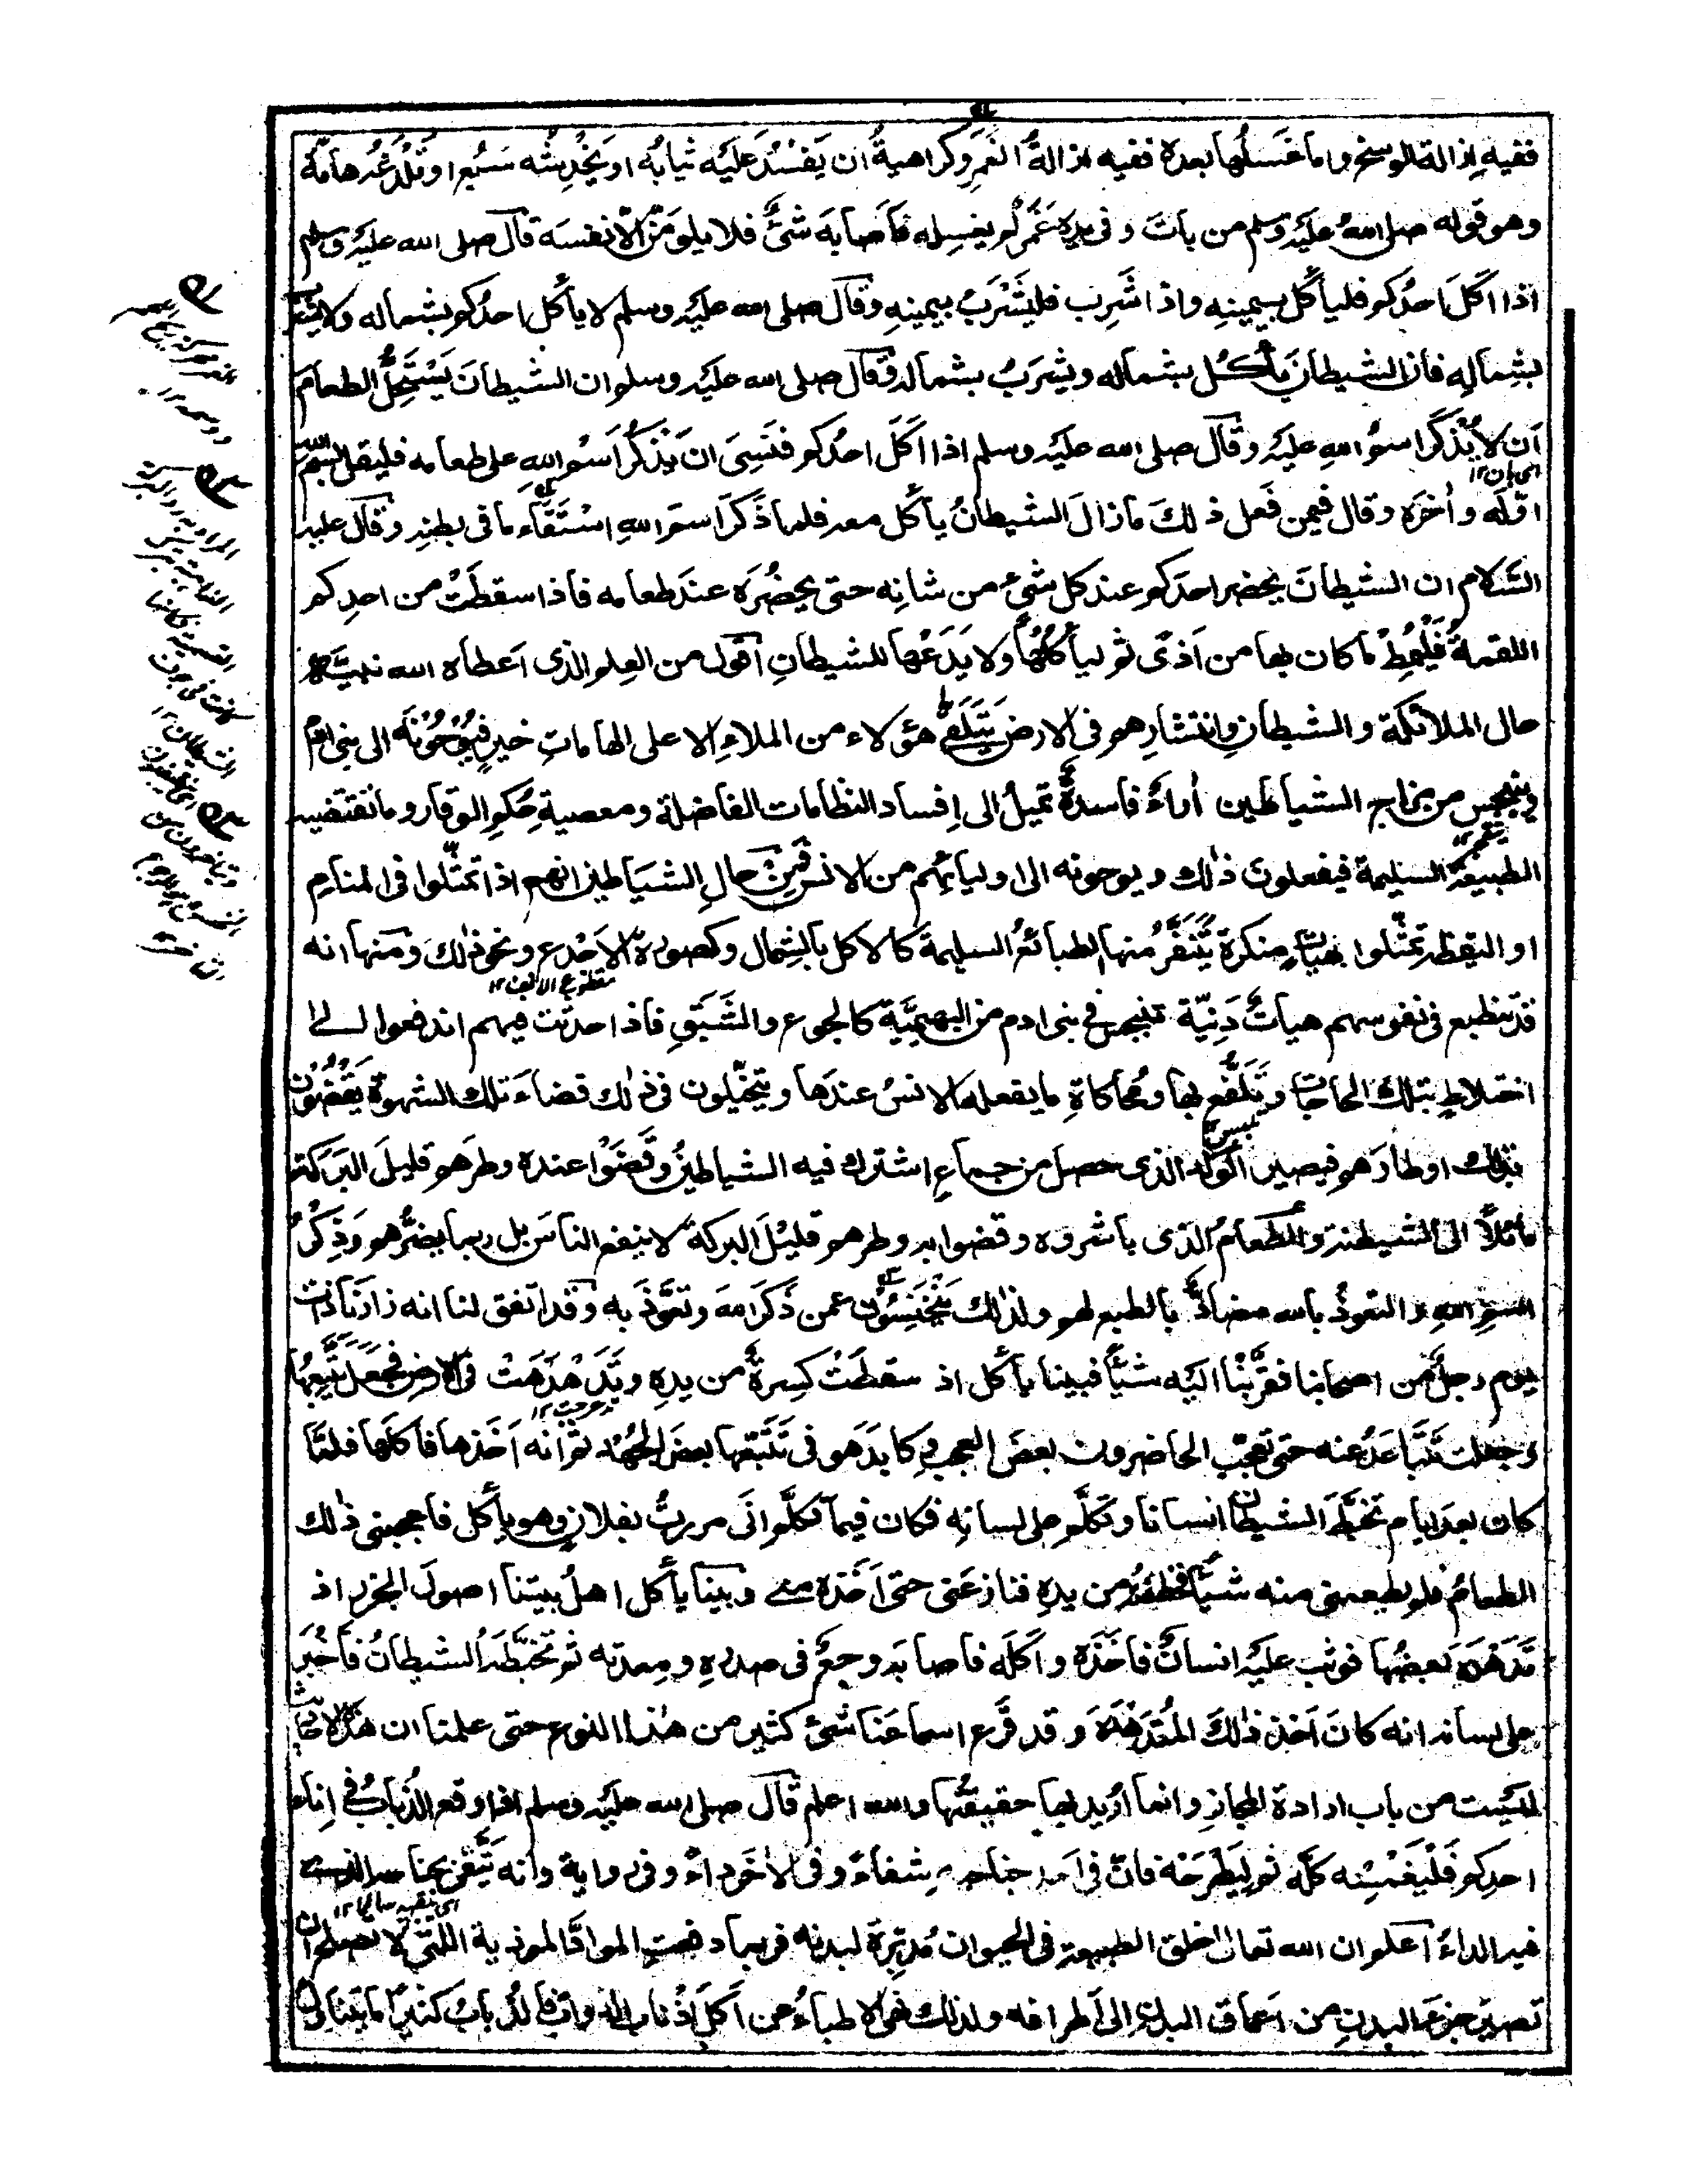 ففيه ازالة الوسخ واما غسلها بعدة ففيه ازالة الغمر وكراهية ان يفسد عليه ثيابه او يخدشه سبع او تلدغه هامة
وهو قوله صلى الله عليه وسلم من بات وفى يده غمر لم يغسله فاصابه شئ فلا يلومن الا نفسه قال صلى الله عليه وسلم
اذا اكل احدكم فليأكل بيمينه واذا شرب فليشرب بيمينه وقال صلى الله عليه وسلم لا يأكل احدكم بشماله ولا يشرب
بشماله فان الشيطان يأكل بشماله ويشرب بشماله وقال صلى الله عليه وسلم ان الشيطان يستحل الطعام
ان لا يذكر اسم الله عليه وقال صلى الله عليه وسلم اذا اكل احدكم فنسى ان يذكر اسم الله على طعامه فليقل بسم الله
اوله واخره وقال فيمن فعل ذلك ما زال الشيطان يأكل معه فلما ذكر اسم الله استقاء ما فى بطنه وقال عليه
السلام ان الشيطان يحضر احدكم عند كل شئ من شانه حتى يحضره عند طعامه فاذا سقطت من احدكم
اللقمة فليمط ما كان بها من اذى ثم ليأكلها ولا يدعها للشيطان اقول من العلم الذى اعطاه الله نبيه
حال الملائكة والشيطان وانتشارهم فى الارض يتلقى هؤلاء من الملاء الاعلى الهامات خير فيوحونه الى بنى ادم
وينبجس من مزاج الشياطين اراء فاسدة تميل الى افساد النظامات الفاضلة ومعصية حكم الوقار وما تقتضيه
الطبيعة السليمة فيفعلون ذلك ويوحونه الى اوليائهم من الانس فمن حال الشياطين انهم اذا تمثلوا فى المنام
او اليقظة تمثلوا بهيأت منكرة يتنفر منها الطبائع السليمة كالاكل بالشمال وكصورة الاجدع ونحو ذلك ومنها انه
مقطوع الانف ١٢
قد تنطبع فى نفوسهم هيأت دنية تنبجس فى بنى ادم من البهيمية كالجوع والشبق فاذا حدثت فيهم اندفعوا الى
اختلاط بتلك الحاجات وتلفع بها ومحاكاة ما يفعله الانس عندها ويتخيلون فى ذلك قضاء تلك الشهوة يقضون
بذلك اوطارهم فيصير الولد الذى حصل من جماع اشترك فيه الشياطين وقضوا عنده وطرهم قليل البركة
مائلا الى الشيطنة والطعام الذى باشروه وقضوا به وطرهم قليل البركة لا ينفع الناس بل ربما يضرهم وذكر
اسم الله والتعوذ بالله مضاد بالطبع لهم ولذلك ينخنسون عمن ذكر الله وتعوذ به وقد اتفق لنا انه زارنا ذات
يوم رجل من اصحابنا فقربنا اليه شيئا فبينا يأكل اذ سقطت كسرة من يده وتدهدهت فى الارض فجعل يتبعها
وجعلت تتباعد عنه حتى تعجب الحاضرون بعض العجب وكابد هو فى تتبعها بعض الجهد ثم انه اخذها فاكلها فلما
كان بعد ايام تخبط الشيطان انسانا وتكلم على لسانه فكان فيما تكلم انى مررت بفلان وهو يأكل فاعجبنى ذلك
الطعام فلم يطعمنى منه شيئا فخطفته من يده فنازعنى حتى اخذه منى وبينا يأكل اهل بيتنا اصول الجزر اذ
تدهده بعضها فوثب عليه انسان فاخذه واكله فاصابه وجع فى صدره ومعدته ثم تخبطه الشيطان فاخبر
على لسانه انه كان اخذ ذلك المتدهده وقد قرع اسماعنا شئ كثير من هذا النوع حتى علمنا ان هذه الاحاديث
ليست من باب ارادة المجاز وانما اريد بها حقيقتها والله اعلم قال صلى الله عليه وسلم اذا وقع الذباب فى اناء
احدكم فليغمسه كله ثم ليطرحه فان فى احد جناحيه شفاء وفى الاخر داء وفى رواية وانه يتقى بجناحه الذى
فيه الداء اعلم ان الله تعالى خلق الطبيعة فى الحيوان مدبرة لبدنه فربما دفعت المواد الموذية التى لا تصلح ان
تصير جزء البدن من اعماق البدن الى اطرافه ولذلك نهى الاطباء عن اكل اذناب الدواب فالذباب كثيرا ما يتناول